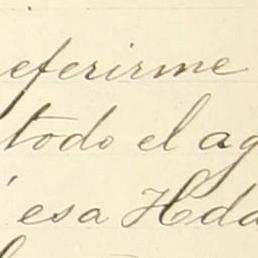 eferirme
todo el ag
esa Hda